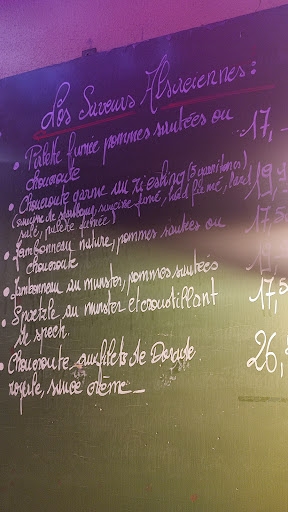 Les Saveurs Alsaciennes :
• Palette fumée pommes sautées ou 17,
choucroute
• Choucroute garnie au riesling (5 garnitures) 19,
(saucisse de strasbourg, saucisse fumé, lard fumé, lard
salé, palette fumée)
• Jambonneau nature, pommes sautées ou 17,50
choucroute
• Jambonneau au munster, pommes sautées 19,
• Spaetzle au munster et croustillant 17,5
de speck.
• Choucroute aux filets de Dorade 26,
royale, sauce crème_